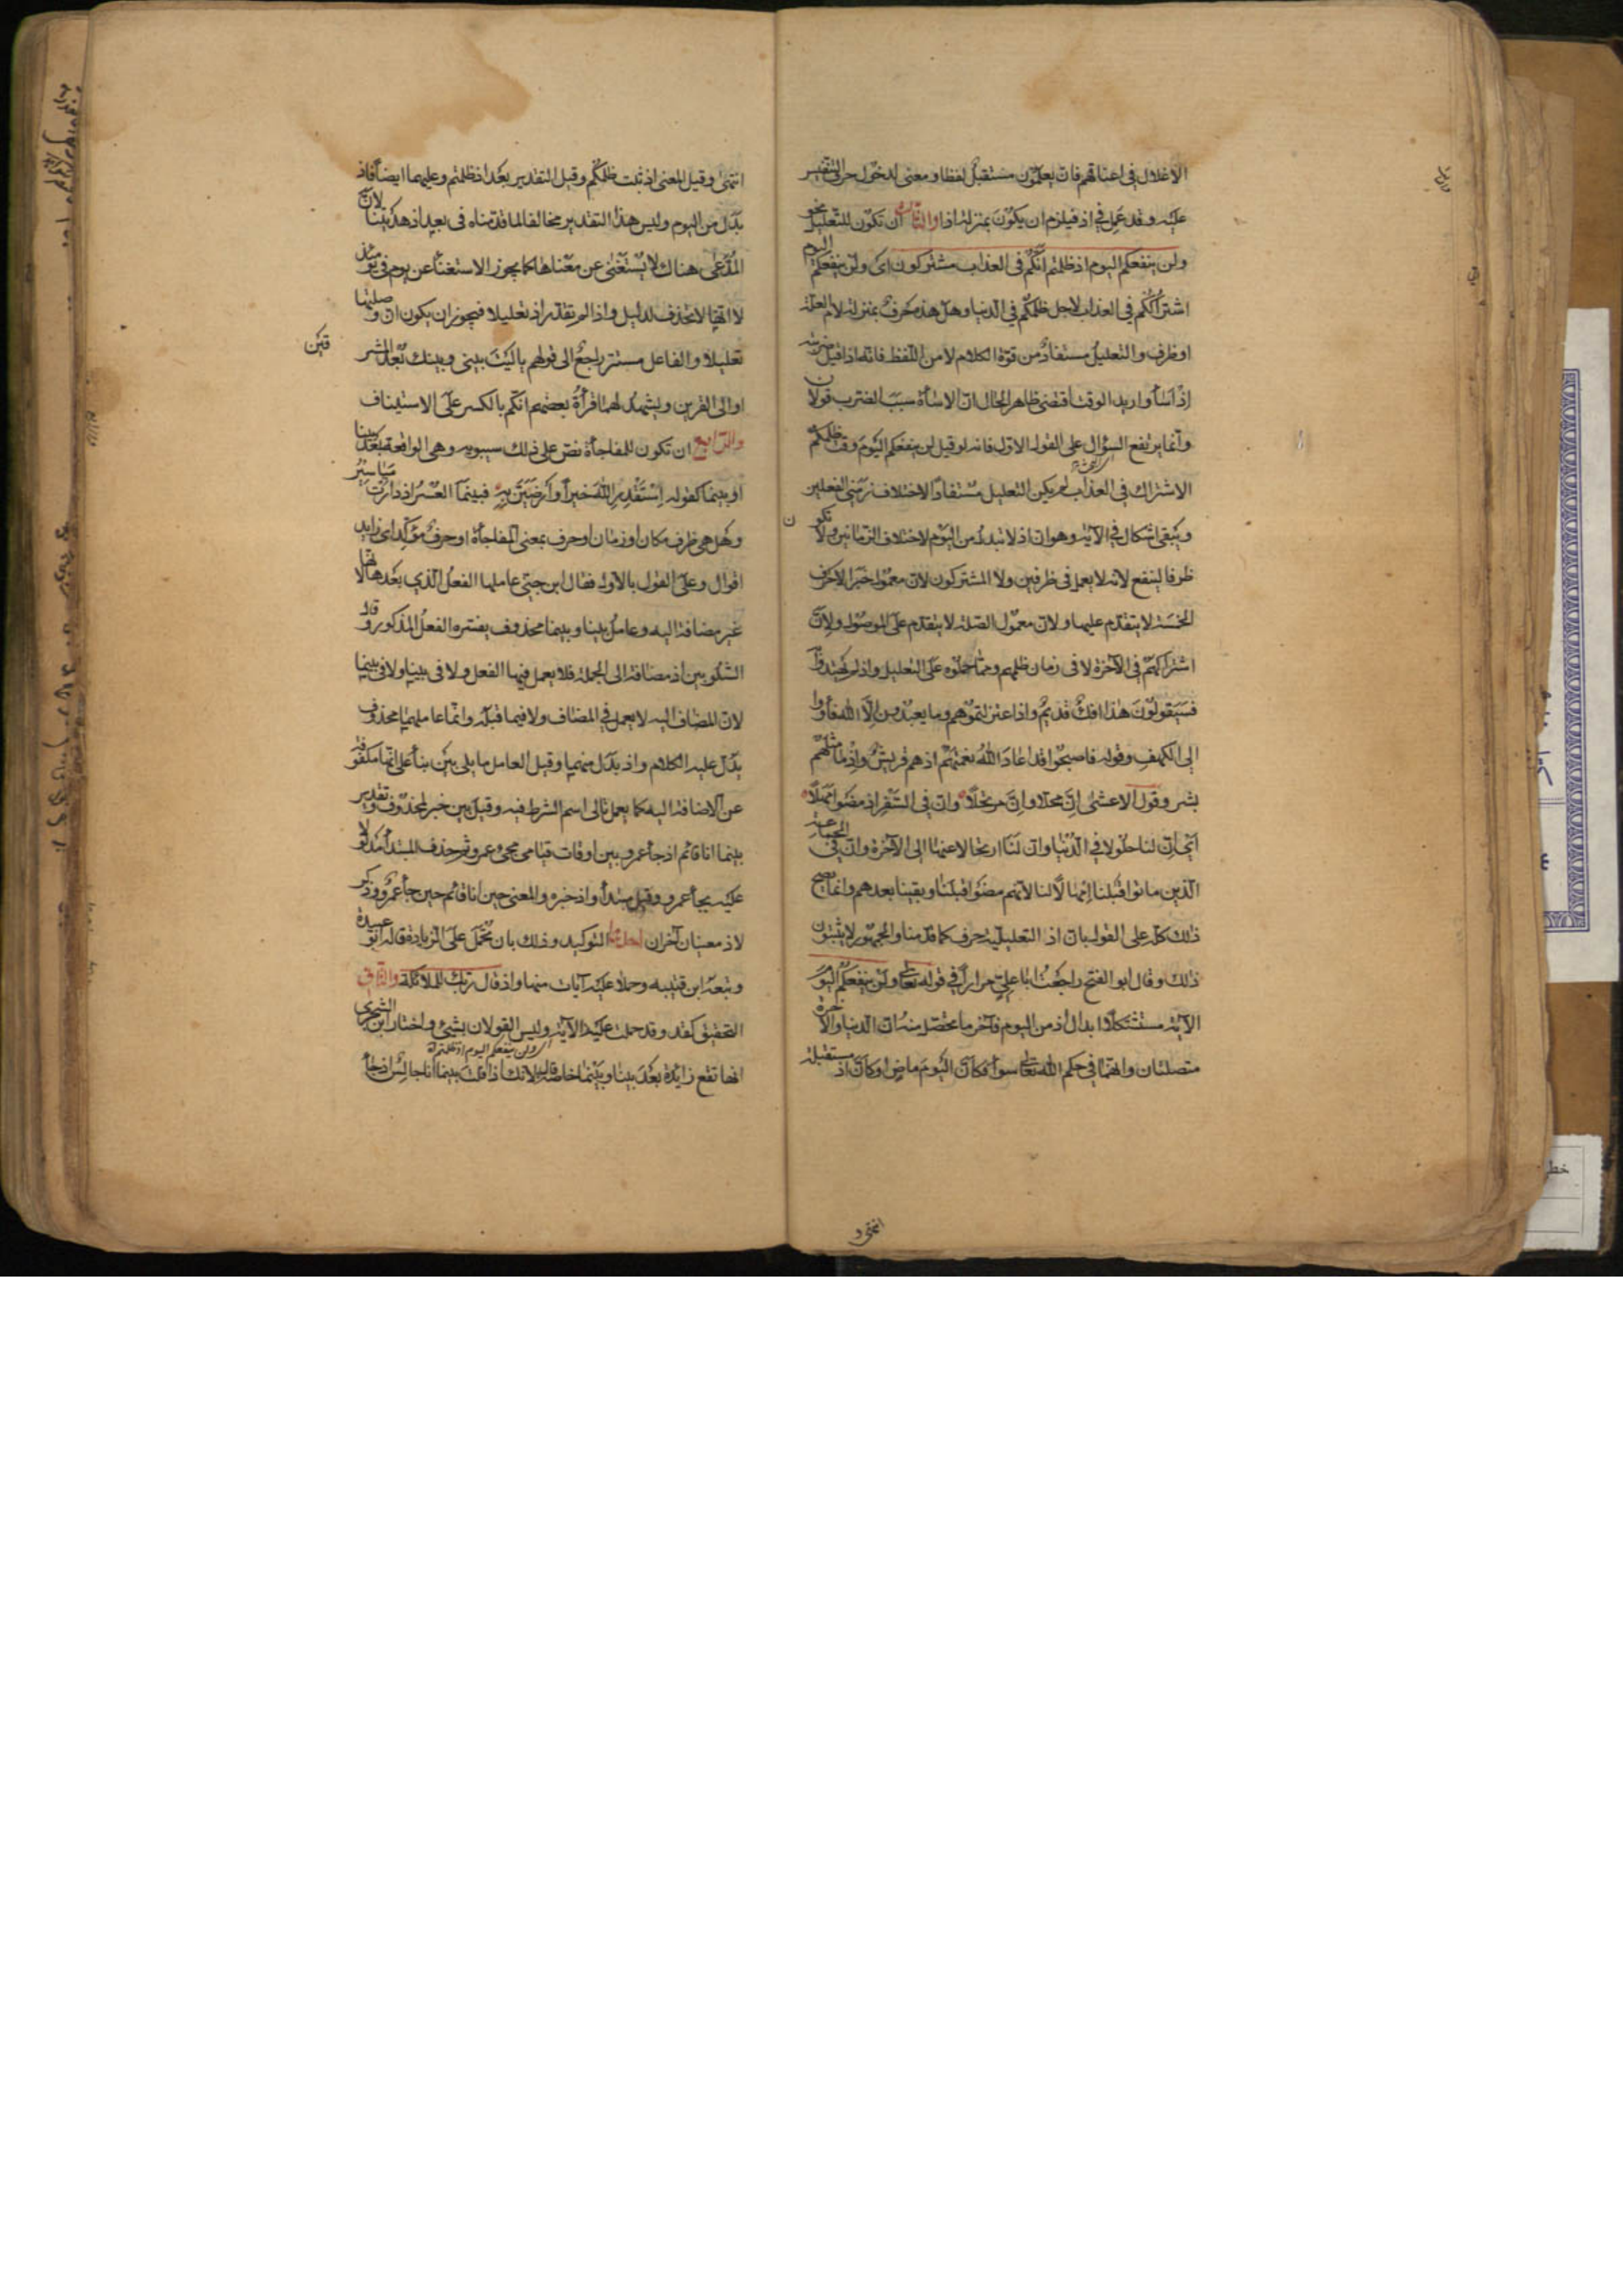 الاغلال في اعناقهم فان يعلمون مستقبل لفظا ومعنى لدخول حرف التنفيس
عليه وقد عمل في اذ فيلزم ان يكون بمنزلة اذا والثالث ان تكون للتعليل نحو
ولن ينفعكم اليوم اذ ظلمتم انكم في العذاب مشتركون اى ولن ينفعكم اليوم
اشتراككم في العذاب لاجل ظلمكم في الدنيا وهل هذه حرف بمنزلة لام العلة
او ظرف والتعليل مستفاد من قوة الكلام لا من اللفظ فانه اذا قيل ضربته
اذ اساء واريد الوقت اقتضى ظاهر الحال ان الاساة سبب الضرب قولان
وانما يرتفع السؤال على القول الاول فانه لو قيل لن ينفعكم اليوم وقت ظلمكم
الاشتراك في العذاب لم يكن التعليل مستفادا لاختلاف زمنى الفعلين
ويبقى اشكال في الآية وهو ان اذ لا تبدل من اليوم لاختلاف الزمانين ولا تكون
ظرفا لينفع لانه لا يعمل في ظرفين ولا لمشتركون لان معمول خبر الاحرف
الخمسة لا يتقدم عليها ولان معمول الصلة لا يتقدم على الموصول ولان
اشتراكهم في الآخرة لا في زمان ظلمهم ومما حملوه على التعليل واذ لم يهتدوا به
فسيقولون هذا افك قديم واذ اعتزلتموهم وما يعبدون الا الله فأووا
الى الكهف وقوله فاصبحوا قد اعاد الله نعمتهم اذ هم قريش واذ ما مثلهم
بشر وقول الاعشى ان محلا وان مرتحلا وان في السفر اذ مضوا مهلا
اى ان لنا حلولا في الدنيا وان لنا ارتحالا عنها الى الآخرة وان في الجماعة
الذين ماتوا قبلنا امهالا لنا لانهم مضوا قبلنا وبقينا بعدهم وانما يصح
ذلك كله على القول بان اذ التعليلية حرف كما قدمنا والجمهور لا يثبتون
ذلك وقال ابو الفتح راجعت ابا علي مرارا في قوله تعالى ولن ينفعكم اليوم
الآية مستشكلا ابدال اذ من اليوم فآخر ما تحصل منه ان الدنيا والآخرة
متصلتان وانهما في حكم الله تعالى سواء فكان اليوم ماض او كان اذ مستقبلة
انتهى و
انتهى وقيل المعنى اذ ثبت ظلمكم وقيل التقدير بعد اذ ظلمتم وعليهما ايضا فاذ
بدل من اليوم وليس هذا التقدير مخالفا لما قدمناه في بعد اذ هديتنا لان
المدعى هناك لا يستغنى عن معناها كما يجوز الاستغناء عن يوم في يومئذ
لا انها لا تحذف لدليل واذا لم تقدر اذ تعليلا فيجوز ان يكون ان وصلتها
تعليلا والفاعل مستتر راجع الى قولهم ياليت بيني وبينك بعد المشر
قين
او الى القرين ويشهد لهما قرأة بعضهم انكم بالكسر على الاستيناف
والرابع ان تكون للمفاجأة نص على ذلك سيبويه وهى الواقعة بعد بينا
او بينما كقوله استقدر الله خيرا وارضين به فبينما العسر اذ دارت مياسير
وهل هى ظرف مكان او زمان او حرف بمعنى المفاجأة او حرف مؤكد اى زايد
اقوال وعلى القول بالاول فقال ابن جنى عاملها الفعل الذي بعدها لانها
غير مضافة اليه وعامل بينا وبينما محذوف يفسره الفعل المذكور وقال
الشلوبين اذ مضافة الى الجملة فلا يعمل فيها الفعل ولا في بينا ولا في بينما
لان المضاف اليه لا يعمل في المضاف ولا فيما قبله وانما عاملهما محذوف
يدل عليه الكلام واذ بدل منهما وقيل العامل ما يلى بين بنأ على انها مكفوفة
عن الاضافة اليه كما يعمل تالى اسم الشرط فيه وقيل بين خبر لمحذوف وتقدير
بينما انا قائم اذ جأ عمرو بين اوقات قيامى مجئ عمرو ثم حذف المبتدأ مدلولا
عليه بجأ عمرو وقيل مبتدأ واذ خبره والمعنى حين انا قائم حين جأ عمرو وذكر
لاذ معنيان آخران احدهما التوكيد وذلك بان تحمل على الزيادة قاله ابو عبيدة
وتبعه ابن قتيبه وحملا عليه آيات منها واذ قال ربك للملائكة والثانى
التحقيق كقد وقد حملت عليه الآية وليس القولان بشئ واختار ابن الشجرى
انها تقع زائدة بعد بينا وبينما خاصة قال لانك اذا قلت بينما انا جالس اذ جأ